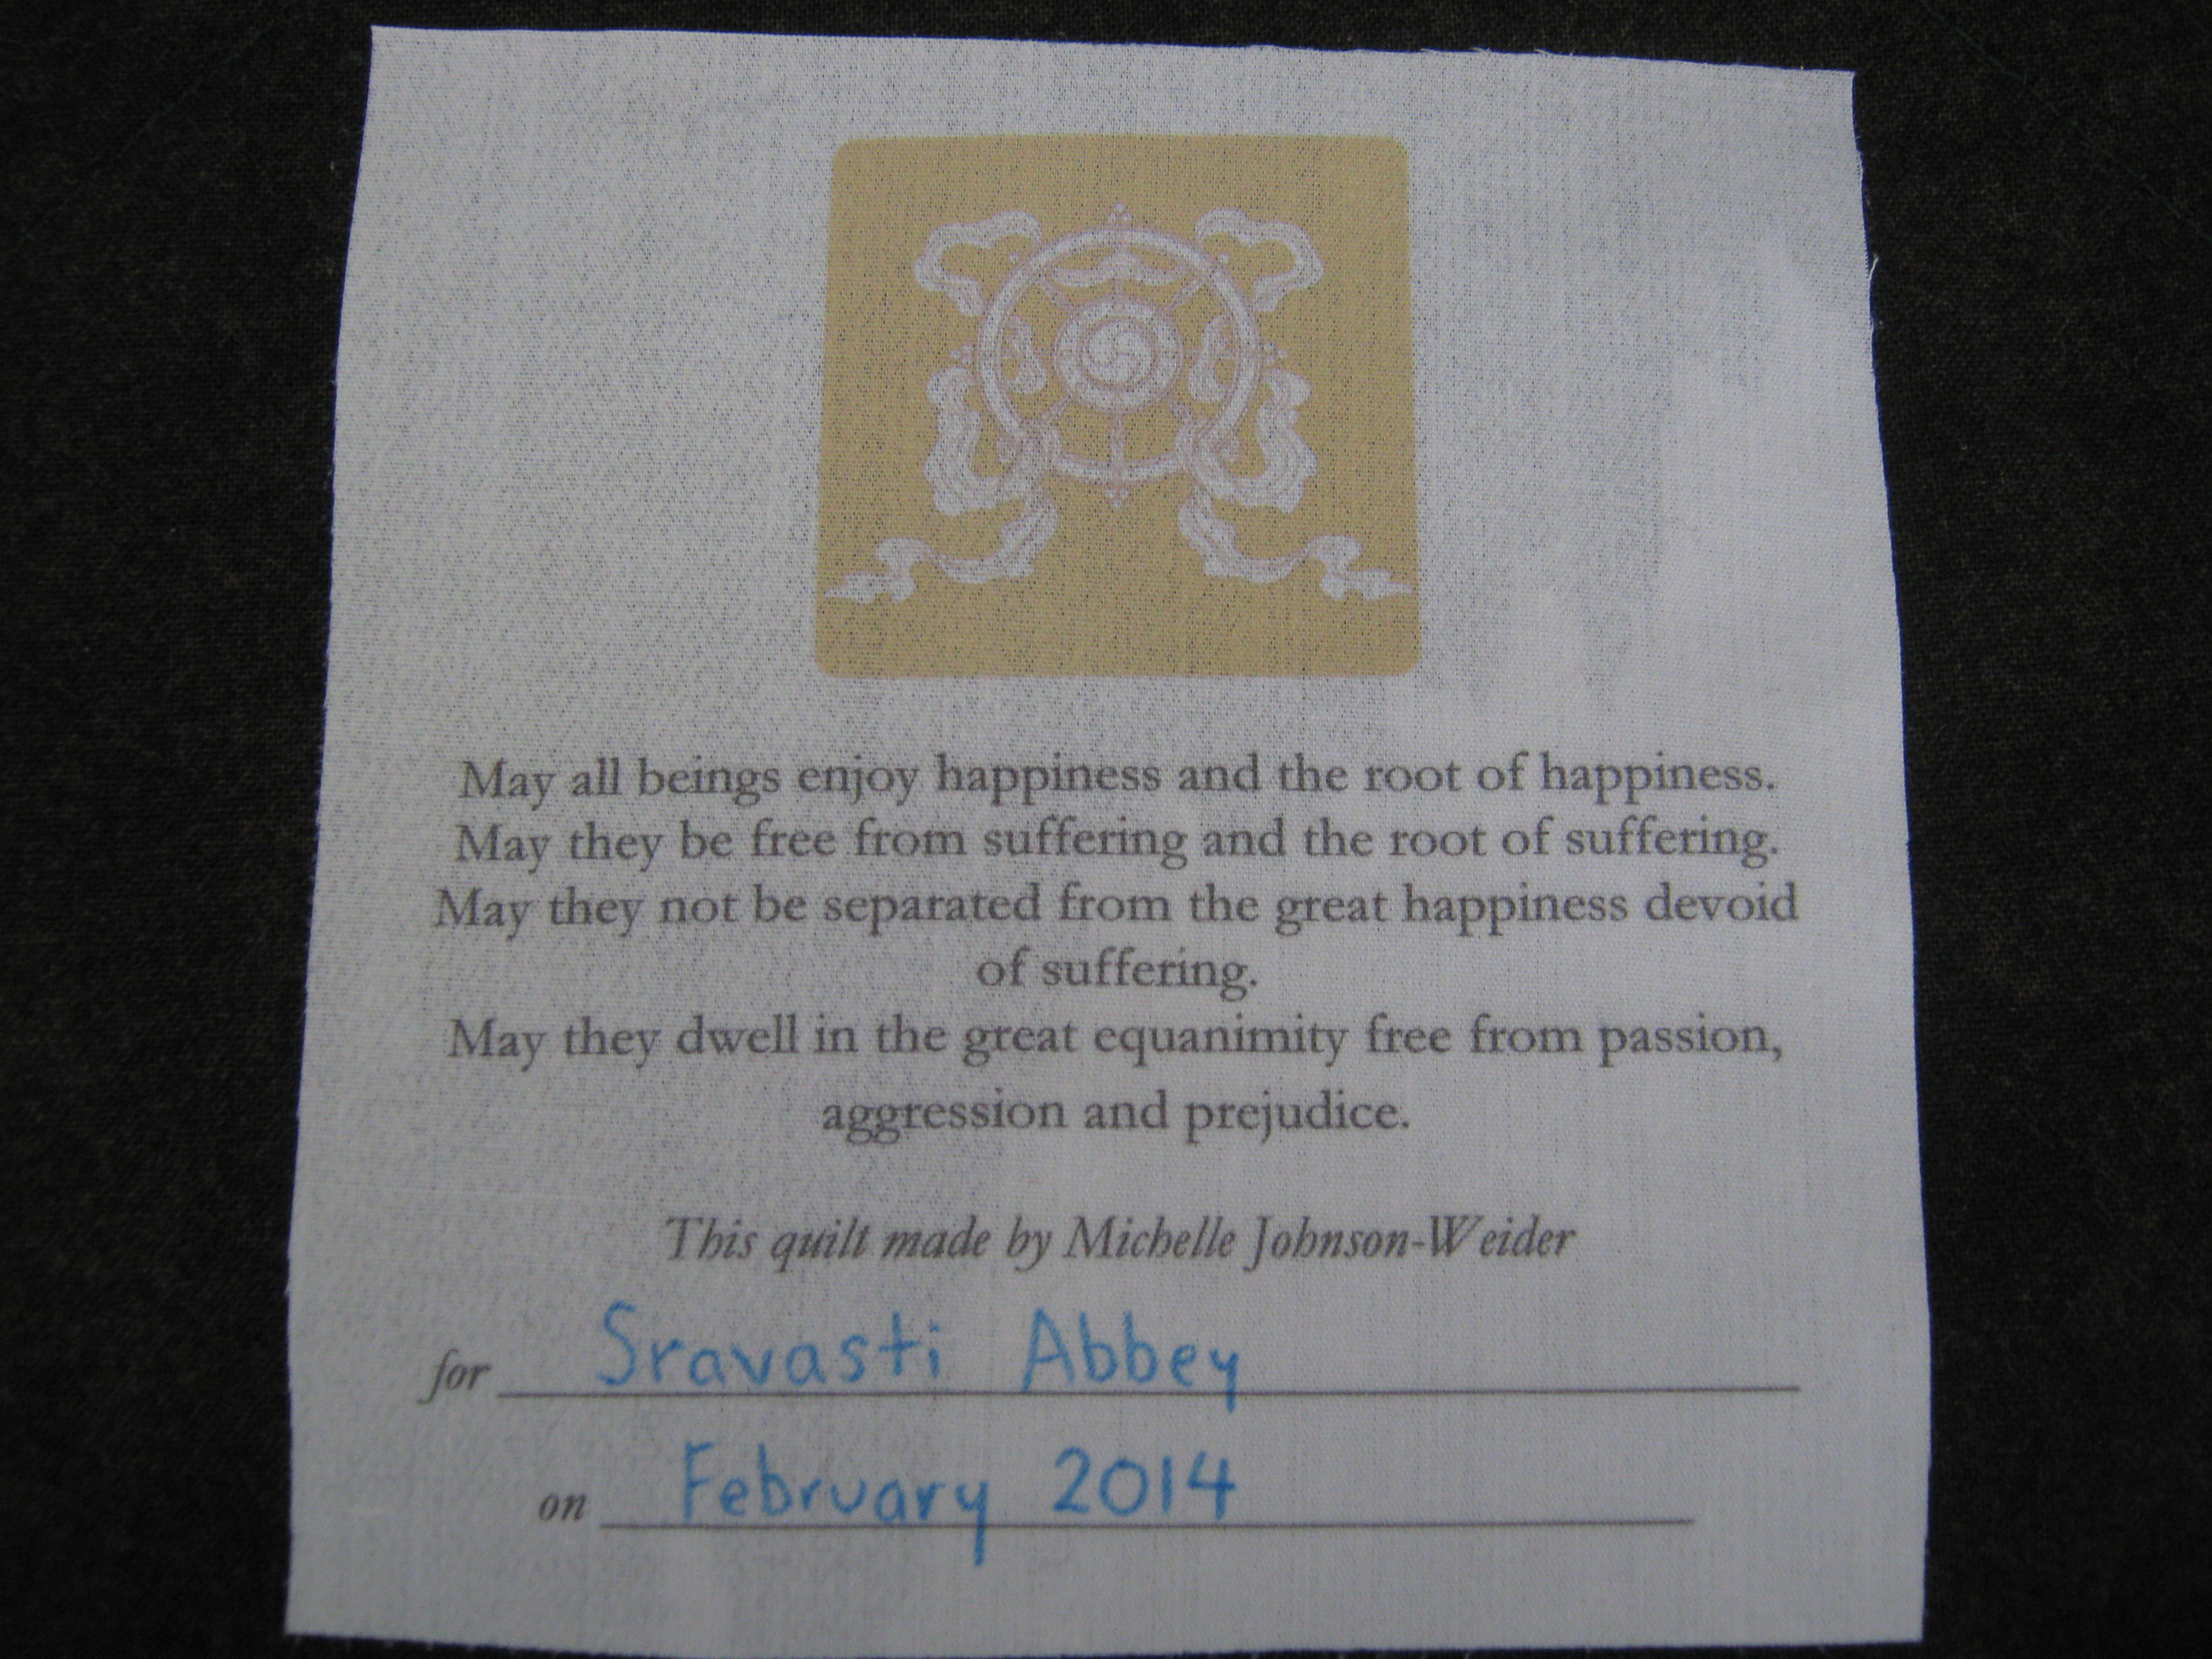 May all beings enjoy happiness and the root of happiness.
May they be free from suffering and the root of suffering.
May they not be separated from the great happiness devoid
of suffering.
May they dwell in the great equanimity free from passion,
aggression and prejudice.
This quilt made by Michelle Johnson-Weider
for Sravasti Abbey
on February 2014